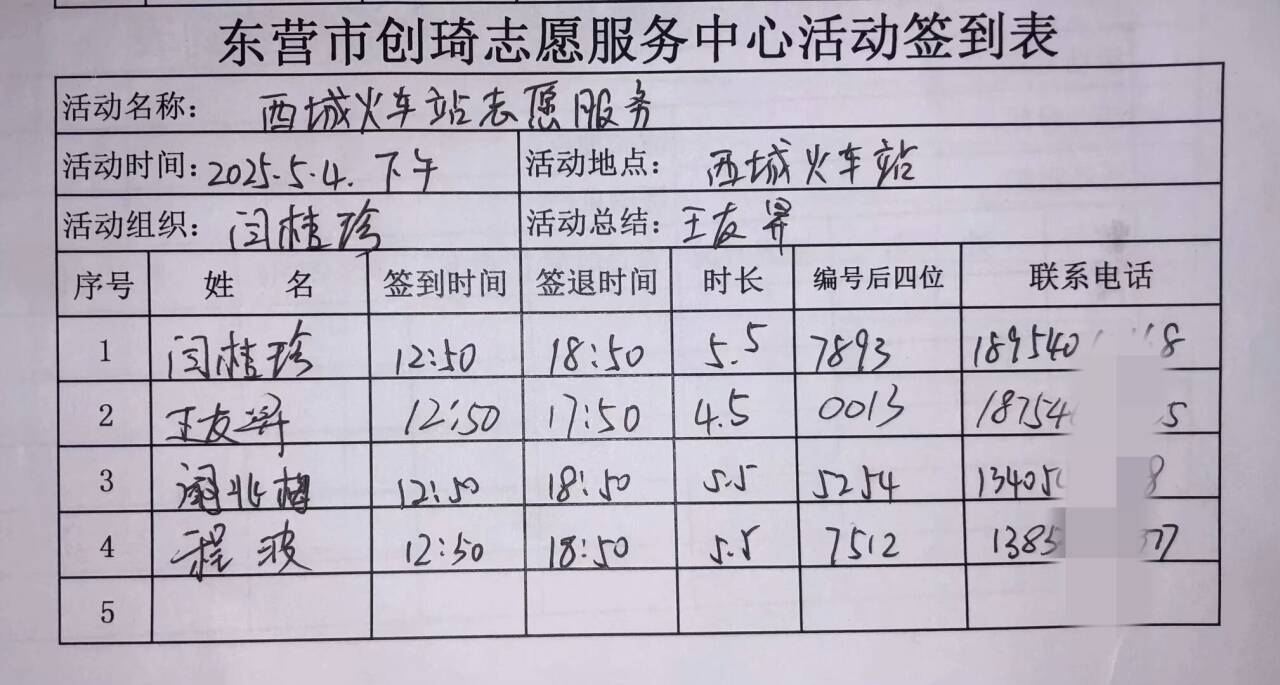 东营市创琦志愿服务中心活动签到表
活动名称: 西城火车站志愿服务
活动时间: 2025.5.4. 下午 活动地点: 西城火车站
活动组织: 闫桂珍 活动总结: 王友昇
序号 姓 名 签到时间 签退时间 时长 编号后四位 联系电话
1 闫桂珍 12:50 18:50 5.5 7893 189540 8
2 王友昇 12:50 17:50 4.5 0013 18754 5
3 12:50 18:50 5.5 5254 13405 8
4 程波 12:50 18:50 5.5 7512 1385 77
5